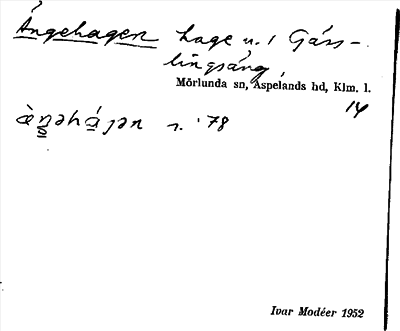 Ängehagen hage n. i Gäss-
lingsäng,
Mörlunda sn, Aspelands hd, Klm. l.
14
s. '78
Ivar Modéer 1952